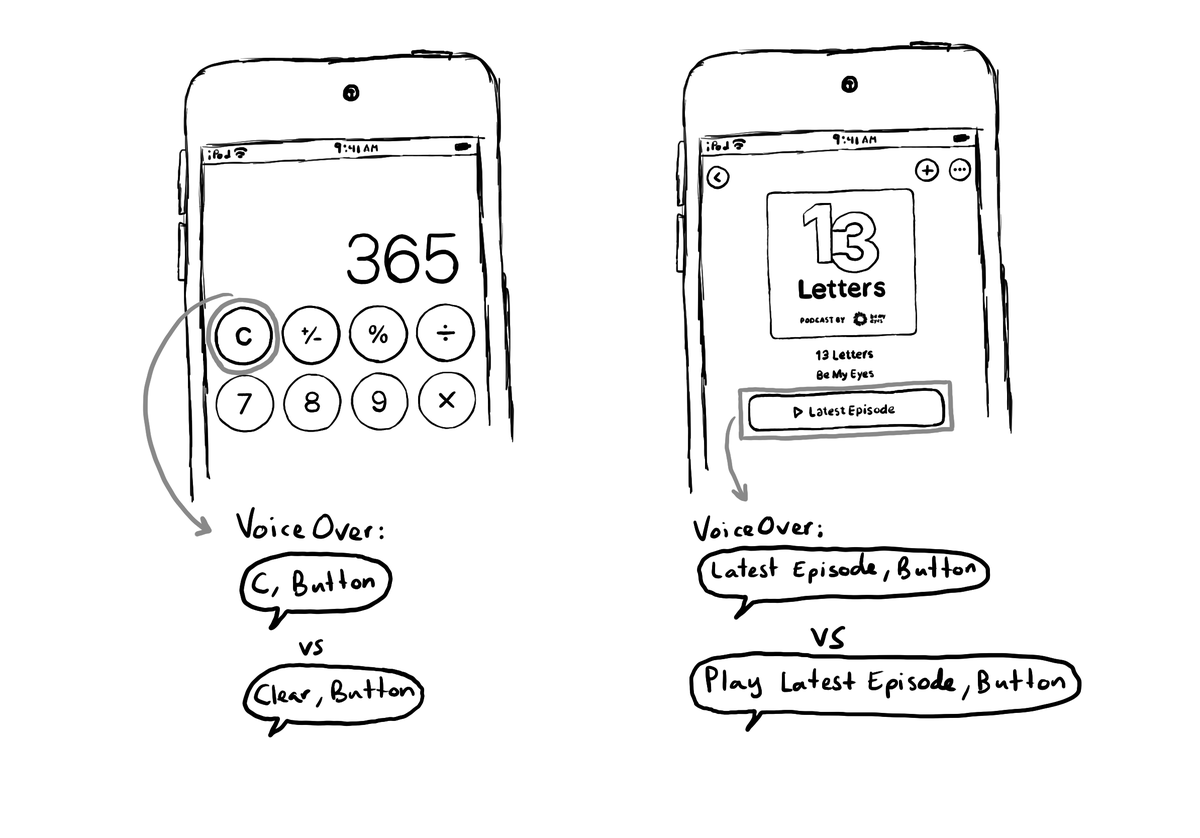 iPod 9:41 AM
365
C +/- % ÷
7 8 9 ×
VoiceOver:
C, Button
vs
Clear, Button
iPod 9:41 AM
< + ...
13
Letters
PODCAST BY be my eyes
13 Letters
Be My Eyes
Latest Episode
VoiceOver:
Latest Episode, Button
vs
Play Latest Episode, Button